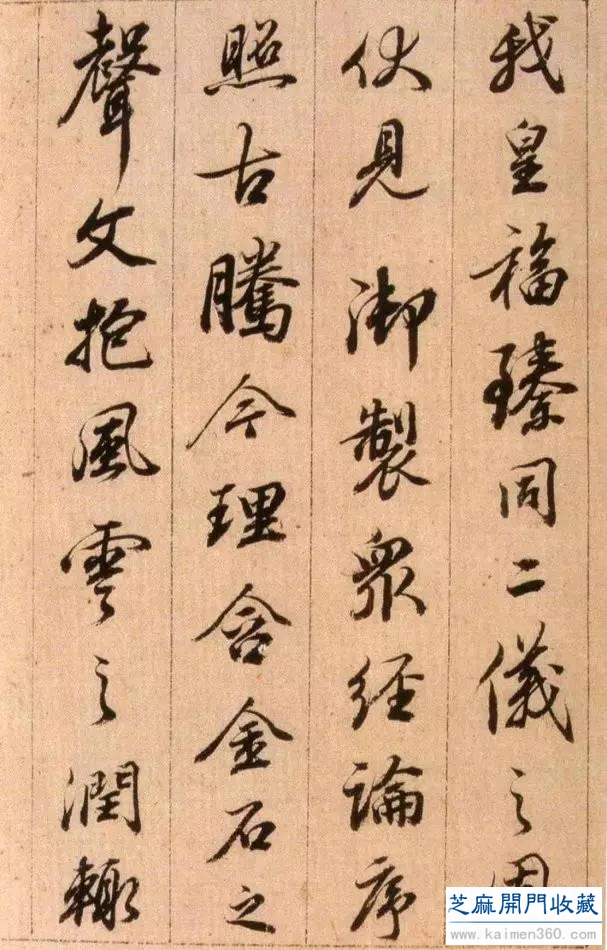 我皇福臻同二儀之固
伏見御製眾經論序
照古騰今理含金石之
聲文抱風雲之潤輙
芝麻開門收藏
www.kaimen360.com